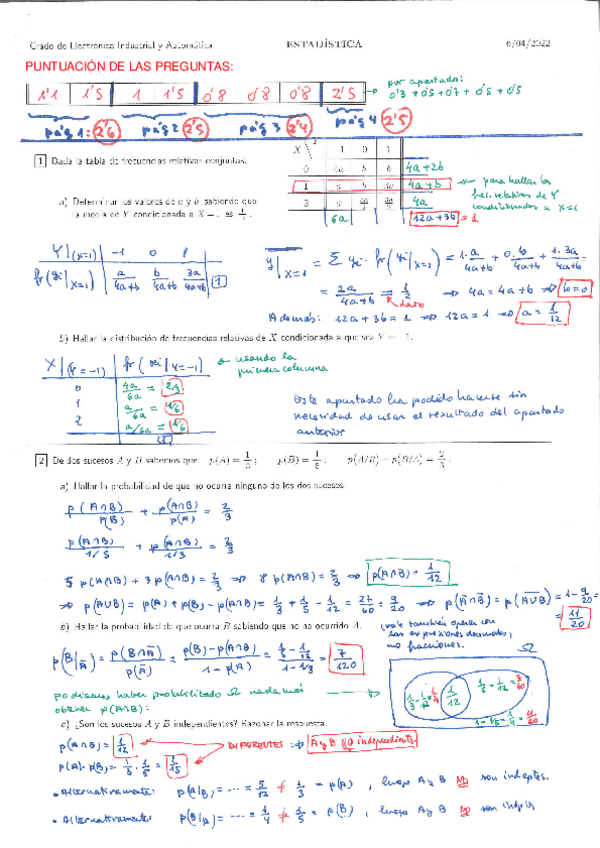 Grado de Electrónica Industrial y Automática ESTADÍSTICA 6/04/2022
PUNTUACIÓN DE LAS PREGUNTAS:
1'1 1'5 1 1'5 0'8 0'8 0'8 2'5 → por apartado:
0'3 + 0'5 + 0'7 + 0'5 + 0'5
pág 1 = 2'6 pág 2 2'5 pág 3 2'4 pág 4 2'5
1 Dada la tabla de frecuencias relativas conjuntas:
X -1 0 1
0 4a b b 4a+2b
1 a b 3a 4a+b
2 a 4a
6a 12a+3b = 1
para hallar las
frec. relativas de Y
condicionadas a X=1
a) Determinar los valores de a y b, sabiendo que
la media de Y condicionada a X = 1 es 1/2.
Y|(X=1) -1 0 1
fr(yi|X=1) a/4a+b b/4a+b 3a/4a+b 1
y|X=1 = Σ yi · fr(yi|X=1) = -1·a/4a+b + 0·b/4a+b + 1·3a/4a+b =
= 2a/4a+b = 1/2 ⇒ 4a = 4a+b ⇒ b=0
dato
Además: 12a+3b=1 ⇒ 12a=1 ⇒ a = 1/12
b) Hallar la distribución de frecuencias relativas de X condicionada a que sea Y = -1.
X|(Y=-1) fr(xi|Y=-1) usando la
primera columna
0 4a/6a = 2/3
1 a/6a = 1/6
2 a/6a = 1/6
Este apartado ha podido hacerse sin
necesidad de usar el resultado del apartado
anterior
2 De dos sucesos A y B sabemos que: p(A) = 1/3; p(B) = 1/5; p(A/B) + p(B/A) = 2/3.
a) Hallar la probabilidad de que no ocurra ninguno de los dos sucesos.
p(A∩B)/p(B) + p(A∩B)/p(A) = 2/3
p(A∩B)/1/5 + p(A∩B)/1/3 = 2/3
5 p(A∩B) + 3 p(A∩B) = 2/3 ⇒ 8 p(A∩B) = 2/3 ⇒ p(A∩B) = 1/12
⇒ p(A∪B) = p(A) + p(B) - p(A∩B) = 1/3 + 1/5 - 1/12 = 27/60 = 9/20 ⇒ p(A̅∩B̅) = p(A̅∪̅B̅) = 1 - 9/20 =
= 11/20
b) Hallar la probabilidad de que ocurra B sabiendo que no ha ocurrido A.
vale también operar con
las expresiones decimales,
no fracciones.
p(B|A̅) = p(B∩A̅)/p(A̅) = p(B)-p(A∩B)/1-p(A) = 1/5 - 1/12 / 1-1/3 = 7/120
podíamos haber probabilitado Ω nada más
obtener p(A∩B):
Ω
1/3 - 1/12 = 1/4 1/12 1/5 - 1/12 = 7/60
c) ¿Son los sucesos A y B independientes? Razonar la respuesta.
p(A∩B) = 1/12
DIFERENTES ⇒ A y B NO independientes
p(A)·p(B) = 1/3 · 1/5 = 1/15
• Alternativamente: p(A|B) = ... = 5/12 ≠ 1/3 = p(A), luego A y B no son indeptes.
• Alternativamente: p(B|A) = ... = 1/4 ≠ 1/5 = p(B), luego A y B no son